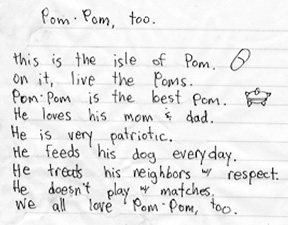 Pom·Pom, too.
this is the isle of Pom.
on it, live the Poms.
Pom·Pom is the best Pom.
He loves his mom & dad.
He is very patriotic.
He feeds his dog everyday.
He treats his neighbors w/ respect.
He doesn't play w/ matches.
We all love Pom·Pom, too.